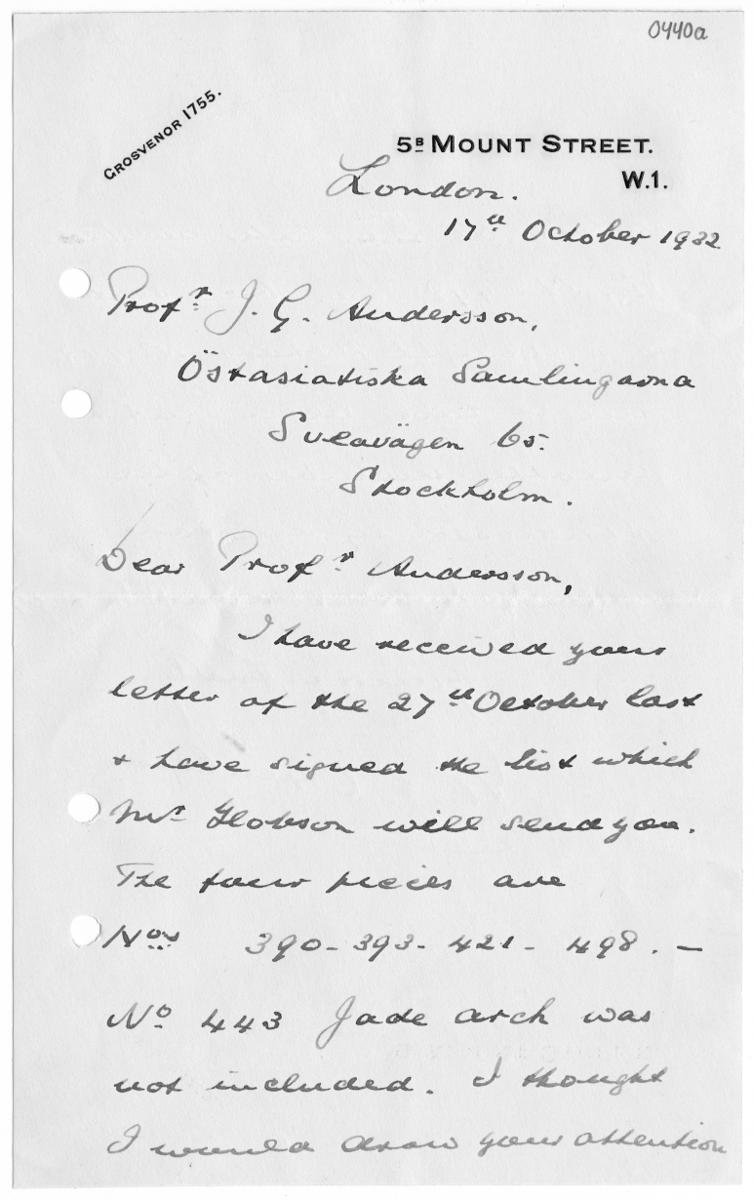 0440a
GROSVENOR 1755.
5B MOUNT STREET.
W.1.
London.
17th October 1932
Profr J. G. Andersson,
Östasiatiska Samlingarna
Sveavägen 65.
Stockholm.
Dear Profr Andersson,
I have received your
letter of the 27th October last
& have signed the list which
Mr Hobson will send you.
The four pieces are
Nos 390 - 393 - 421 - 498. —
No 443 Jade arch was
not included. I thought
I would draw your attention